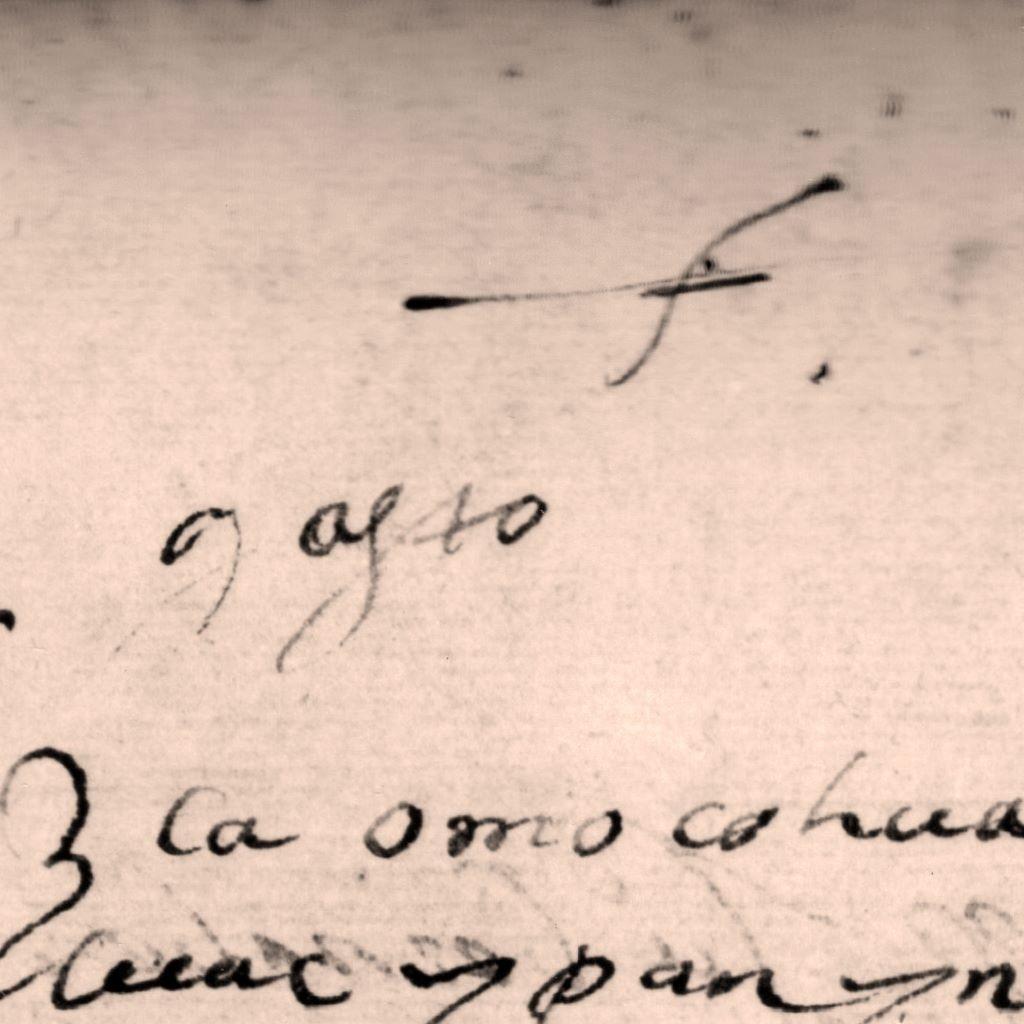 9 agto
ca omo cohua
huac ypan yn